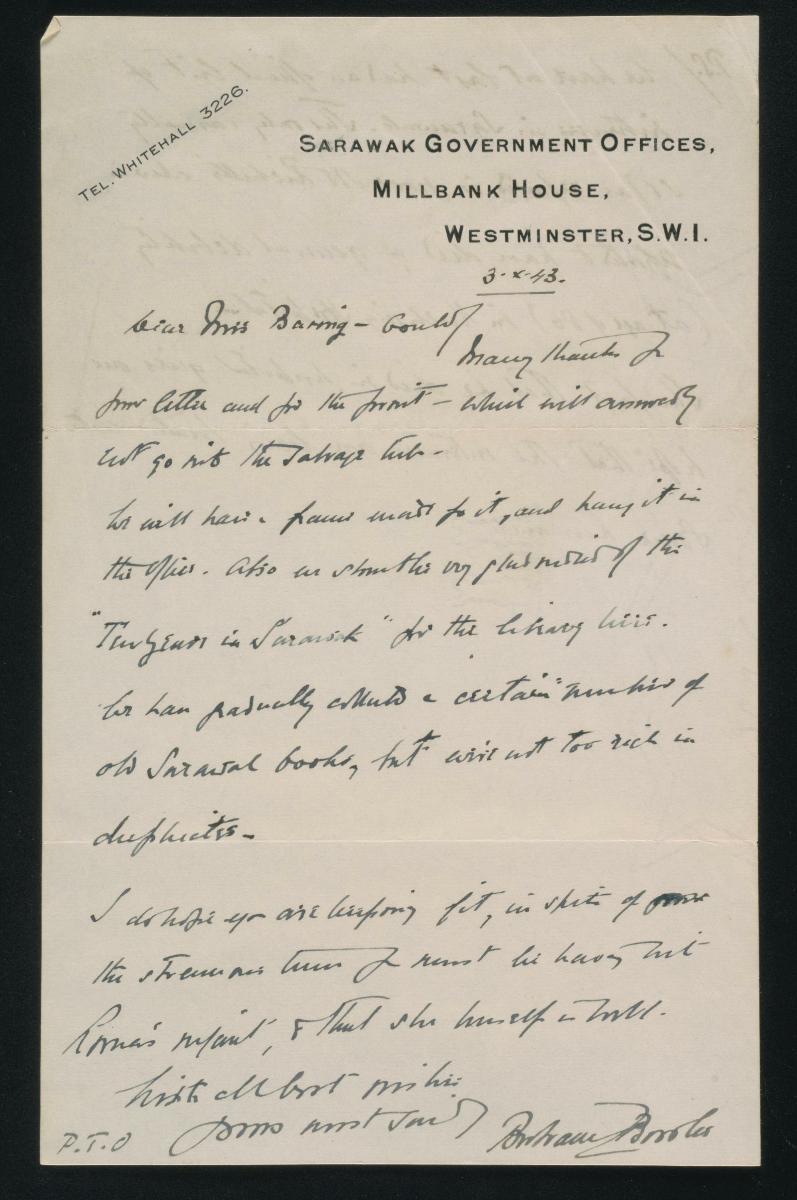 TEL. WHITEHALL 3226.
SARAWAK GOVERNMENT OFFICES,
MILLBANK HOUSE,
WESTMINSTER, S.W.1.
3-x-43.
Dear Miss Baring-Gould
Many thanks for
your letter and for the print - which will assuredly
not go into the salvage tub-
We will have a frame made for it, and hang it in
the office. Also we should be very glad indeed of the
"Ten years in Sarawak" for the library here.
We have gradually collected a certain number of
old Sarawak books, but we're not too rich in
duplicates-
I do hope you are keeping fit, in spite of
the strenuous time you must be having with
infant, & that she herself is well.
With all best wishes
yours most sincly
Bertram Brooke
P.T.O